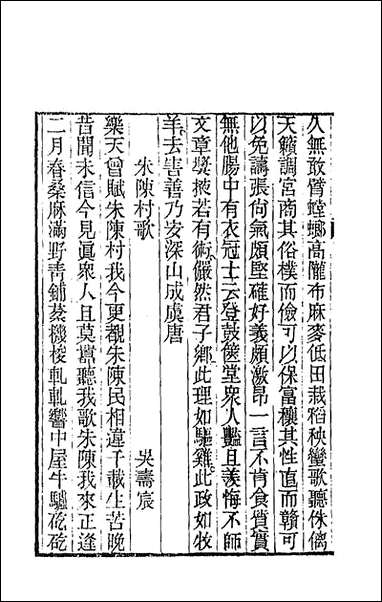 人無敢臂螳螂高隴布麻麥低田栽稻秧蠻歌聽侏㒧
天籟調宮商其俗樸而儉可以保富穰其性直而贛可
以免譸張尚氣頗堅確好義頗激昂一言不肯食質實
無他腸中有衣冠士云登鼓篋堂衆人豔且羨悔不師
文章奬掖若有術儼然君子鄉此理如驅雞此政如牧
羊去害善乃安深山成虞唐
朱陳村歌 吳壽宸
樂天曾賦朱陳村我今更覩朱陳民相違千載生苦晚
昔聞未信今見眞衆人且莫黨聽我歌朱陳我來正逢
二月春桑麻滿野靑鋪棻機梭軋軋響中屋牛驢矻矻